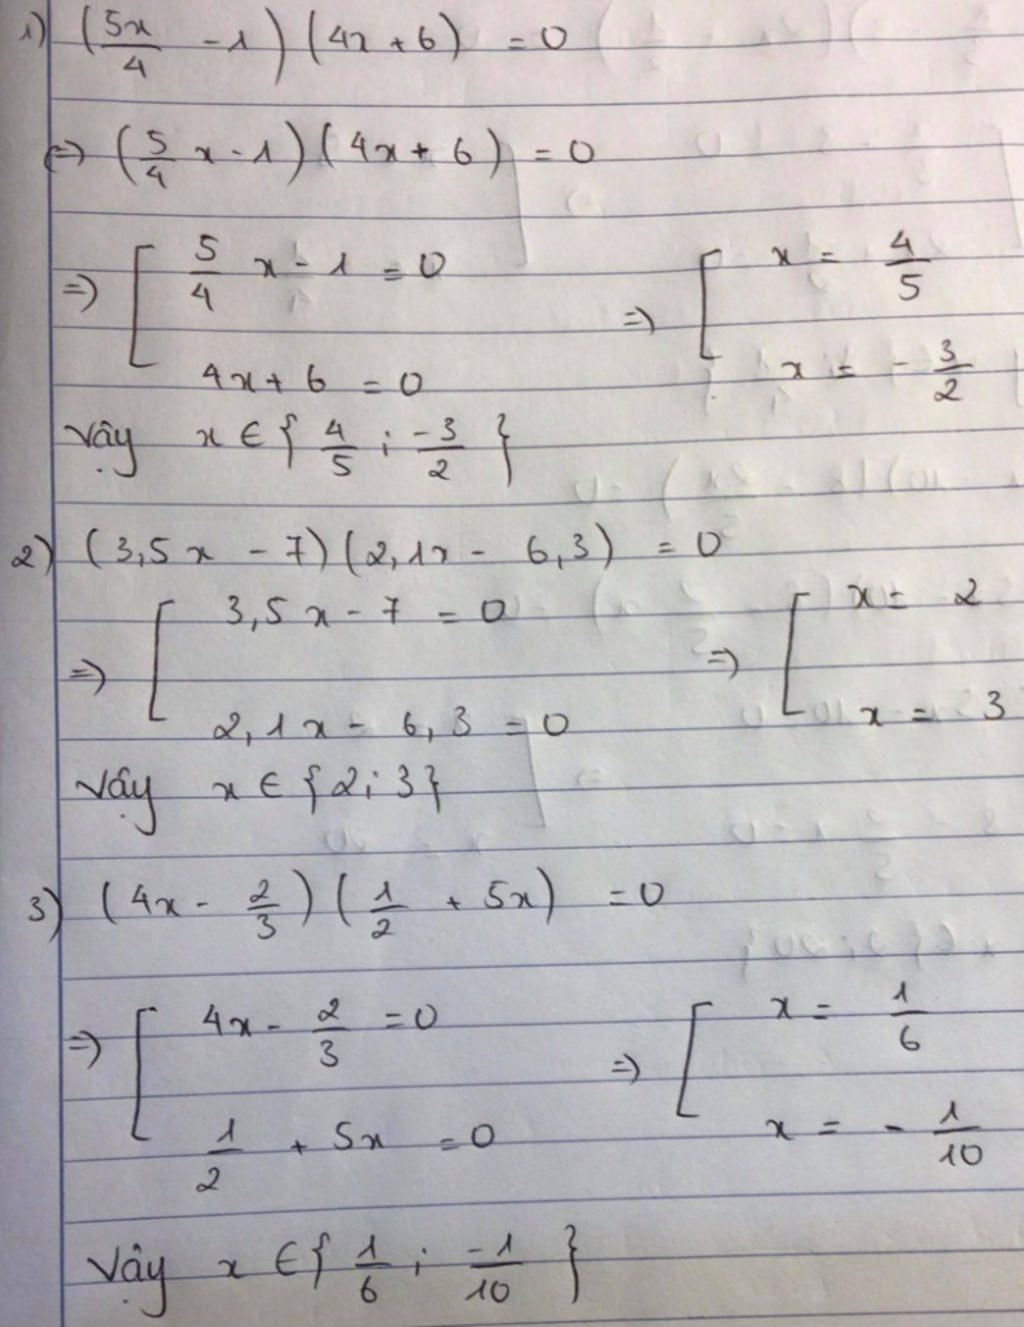 1) (5x/4 - 1)(4x + 6) = 0
(=) (5/4 x - 1)(4x + 6) = 0
=) [ 5/4 x - 1 = 0 =) [ x = 4/5
4x + 6 = 0 x = - 3/2
Vậy x ∈ { 4/5 ; -3/2 }
2) (3,5x - 7)(2,1x - 6,3) = 0
=) [ 3,5x - 7 = 0 =) [ x = 2
2,1x - 6,3 = 0 x = 3
Vậy x ∈ {2; 3}
3) (4x - 2/3)(1/2 + 5x) = 0
=) [ 4x - 2/3 = 0 =) [ x = 1/6
1/2 + 5x = 0 x = - 1/10
Vậy x ∈ { 1/6 ; -1/10 }